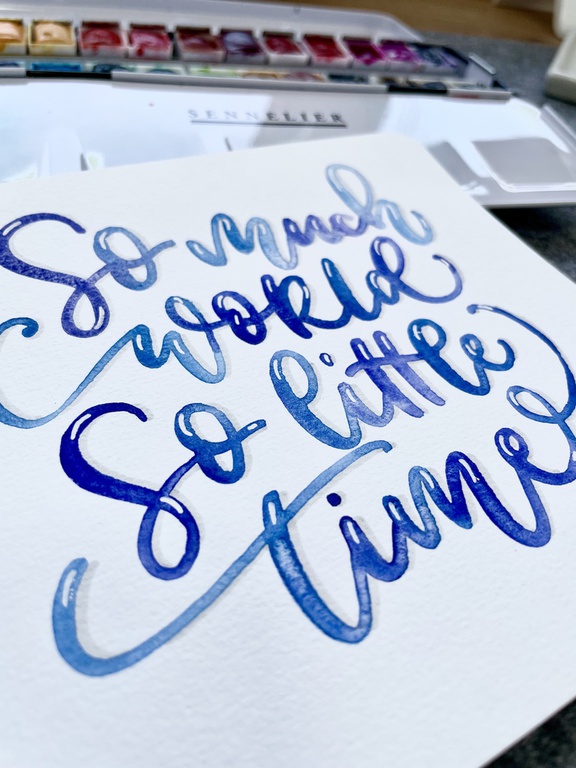 SENNELIER
So much
world
So little
time